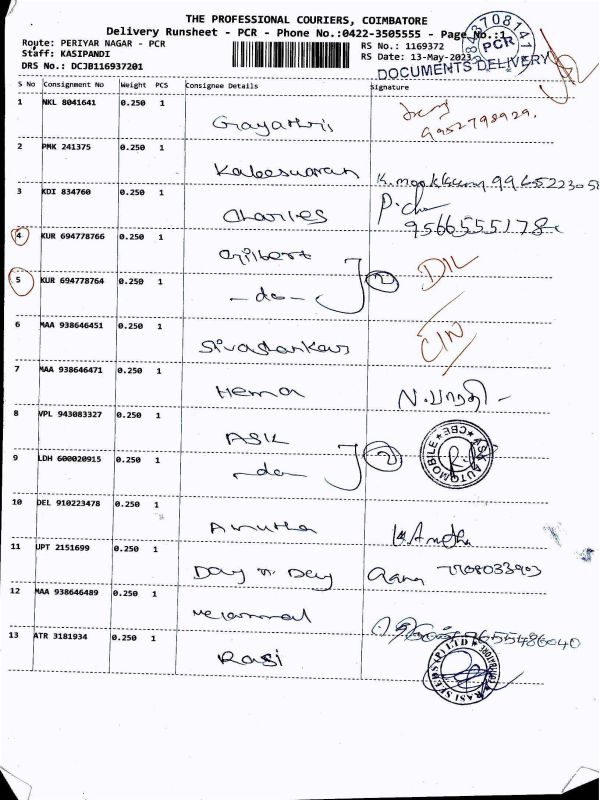 THE PROFESSIONAL COURIERS, COIMBATORE
Delivery Runsheet - PCR - Phone No.:0422-3505555 - Page No.:1
Route: PERIYAR NAGAR - PCR RS No.: 1169372
Staff: KASIPANDI RS Date: 13-May-2023
DRS No.: DCJB116937201
PCR
DOCUMENTS DELIVERY
S No Consignment No Weight PCS Consignee Details Signature
1 NKL 8041641 0.250 1
Gayathris 9952798929.
2 PMK 241375 0.250 1
Kaleeswaran
3 KDI 834760 0.250 1
Charles P.
9566555178
4 KUR 694778766 0.250 1
Gilbert DIL
5 KUR 694778764 0.250 1
-do- 2
6 MAA 938646451 0.250 1
Sivasankar CIN
7 MAA 938646471 0.250 1
Hema N.
8 VPL 943083327 0.250 1
ASK
ASK AUTOMOBILE CBE
9 LDH 600020915 0.250 1
-do- 2
10 DEL 910223478 0.250 1
Anutha
11 UPT 2151699 0.250 1
Day to Day 7708033903
12 MAA 938646489 0.250 1
13 ATR 3181934 0.250 1
Rasi